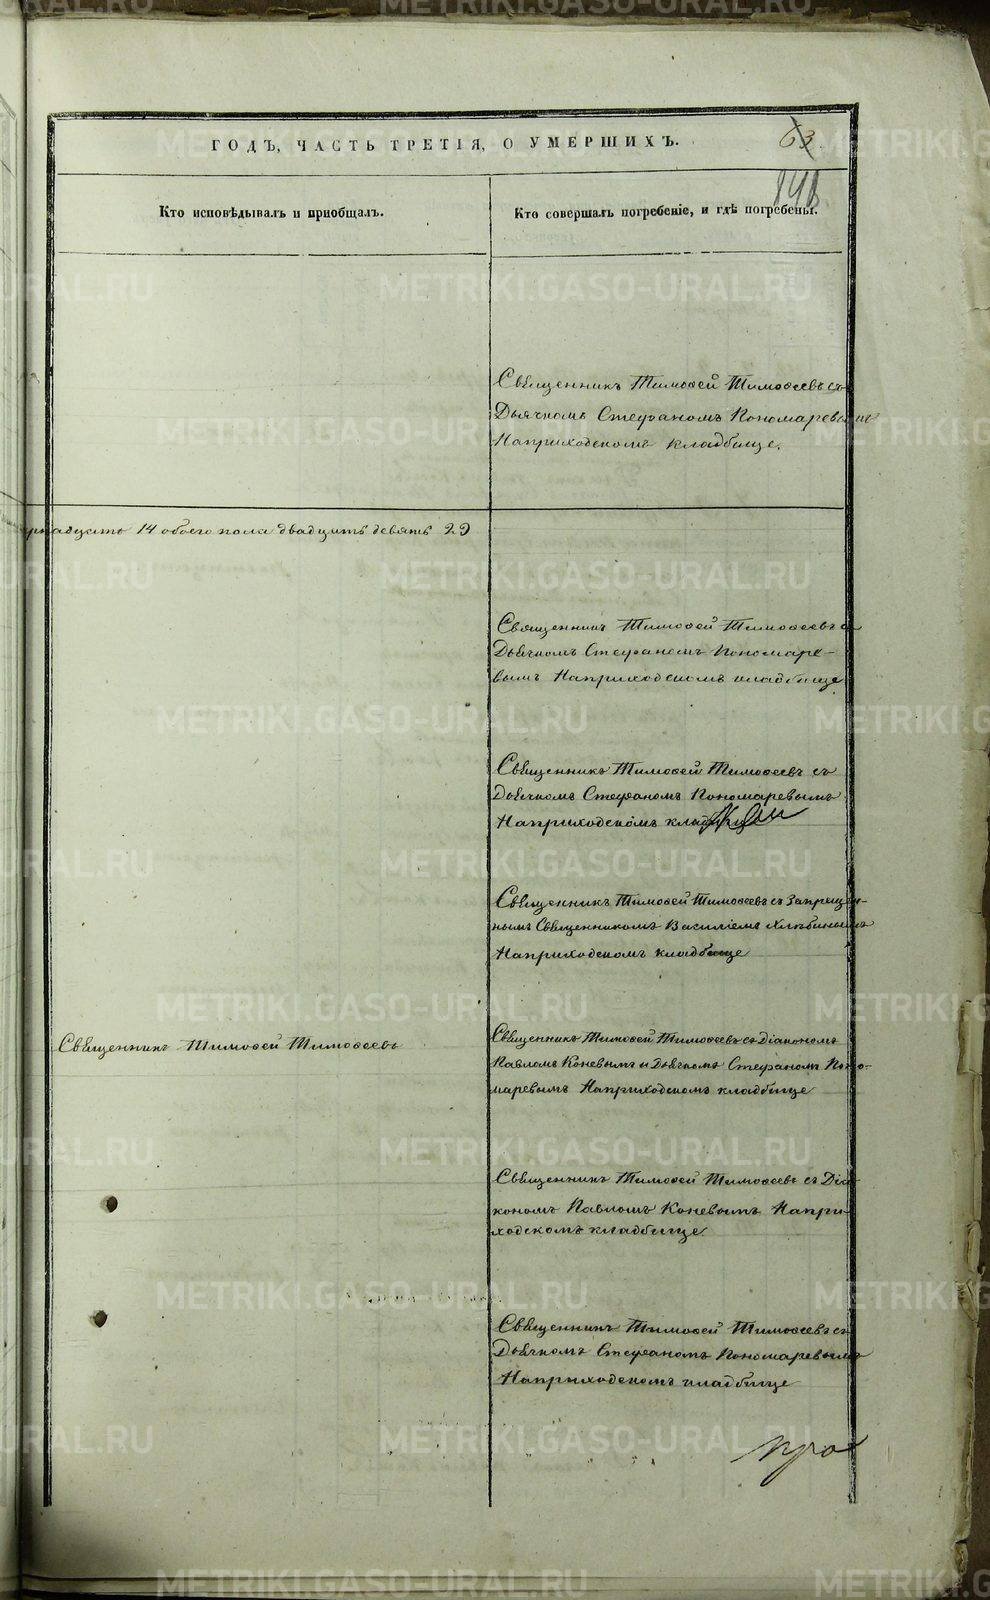 ГОДЪ, ЧАСТЬ ТРЕТІЯ, О УМЕРШИХЪ.
63
Кто исповѣдывалъ и пріобщалъ.
Кто совершалъ погребеніе, и гдѣ погребены.
Священникъ Тимоѳей Тимоѳеевъ съ
Дьячкомъ Стефаномъ Пономаревымъ
На приходскомъ кладбище.
14 обоего пола двадцать девять 29
Священникъ Тимоѳей Тимоѳеевъ с
Дьячкомъ Стефаномъ Пономаре-
вымъ На приходскомъ кладбище
Священникъ Тимоѳей Тимоѳеевъ съ
Дьячкомъ Стефаномъ Пономаревымъ
На приходскомъ
Священникъ Тимоѳей Тимоѳеевъ съ Запрещен-
нымъ Священникомъ Василіемъ
На приходскомъ кладбище
Священникъ Тимоѳей Тимоѳеевъ
Священникъ Тимоѳей Тимоѳеевъ съ Діакономъ
Павломъ Коневымъ и Дьячкомъ Стефаномъ Поно-
маревымъ На приходскомъ кладбище
Священникъ Тимоѳей Тимоѳеевъ съ Діа-
кономъ Павломъ Коневымъ На при-
ходскомъ кладбище
Священникъ Тимоѳей Тимоѳеевъ съ
Дьячкомъ Стефаномъ Пономаревымъ
На приходскомъ кладбище
METRIKI.GASO-URAL.RU